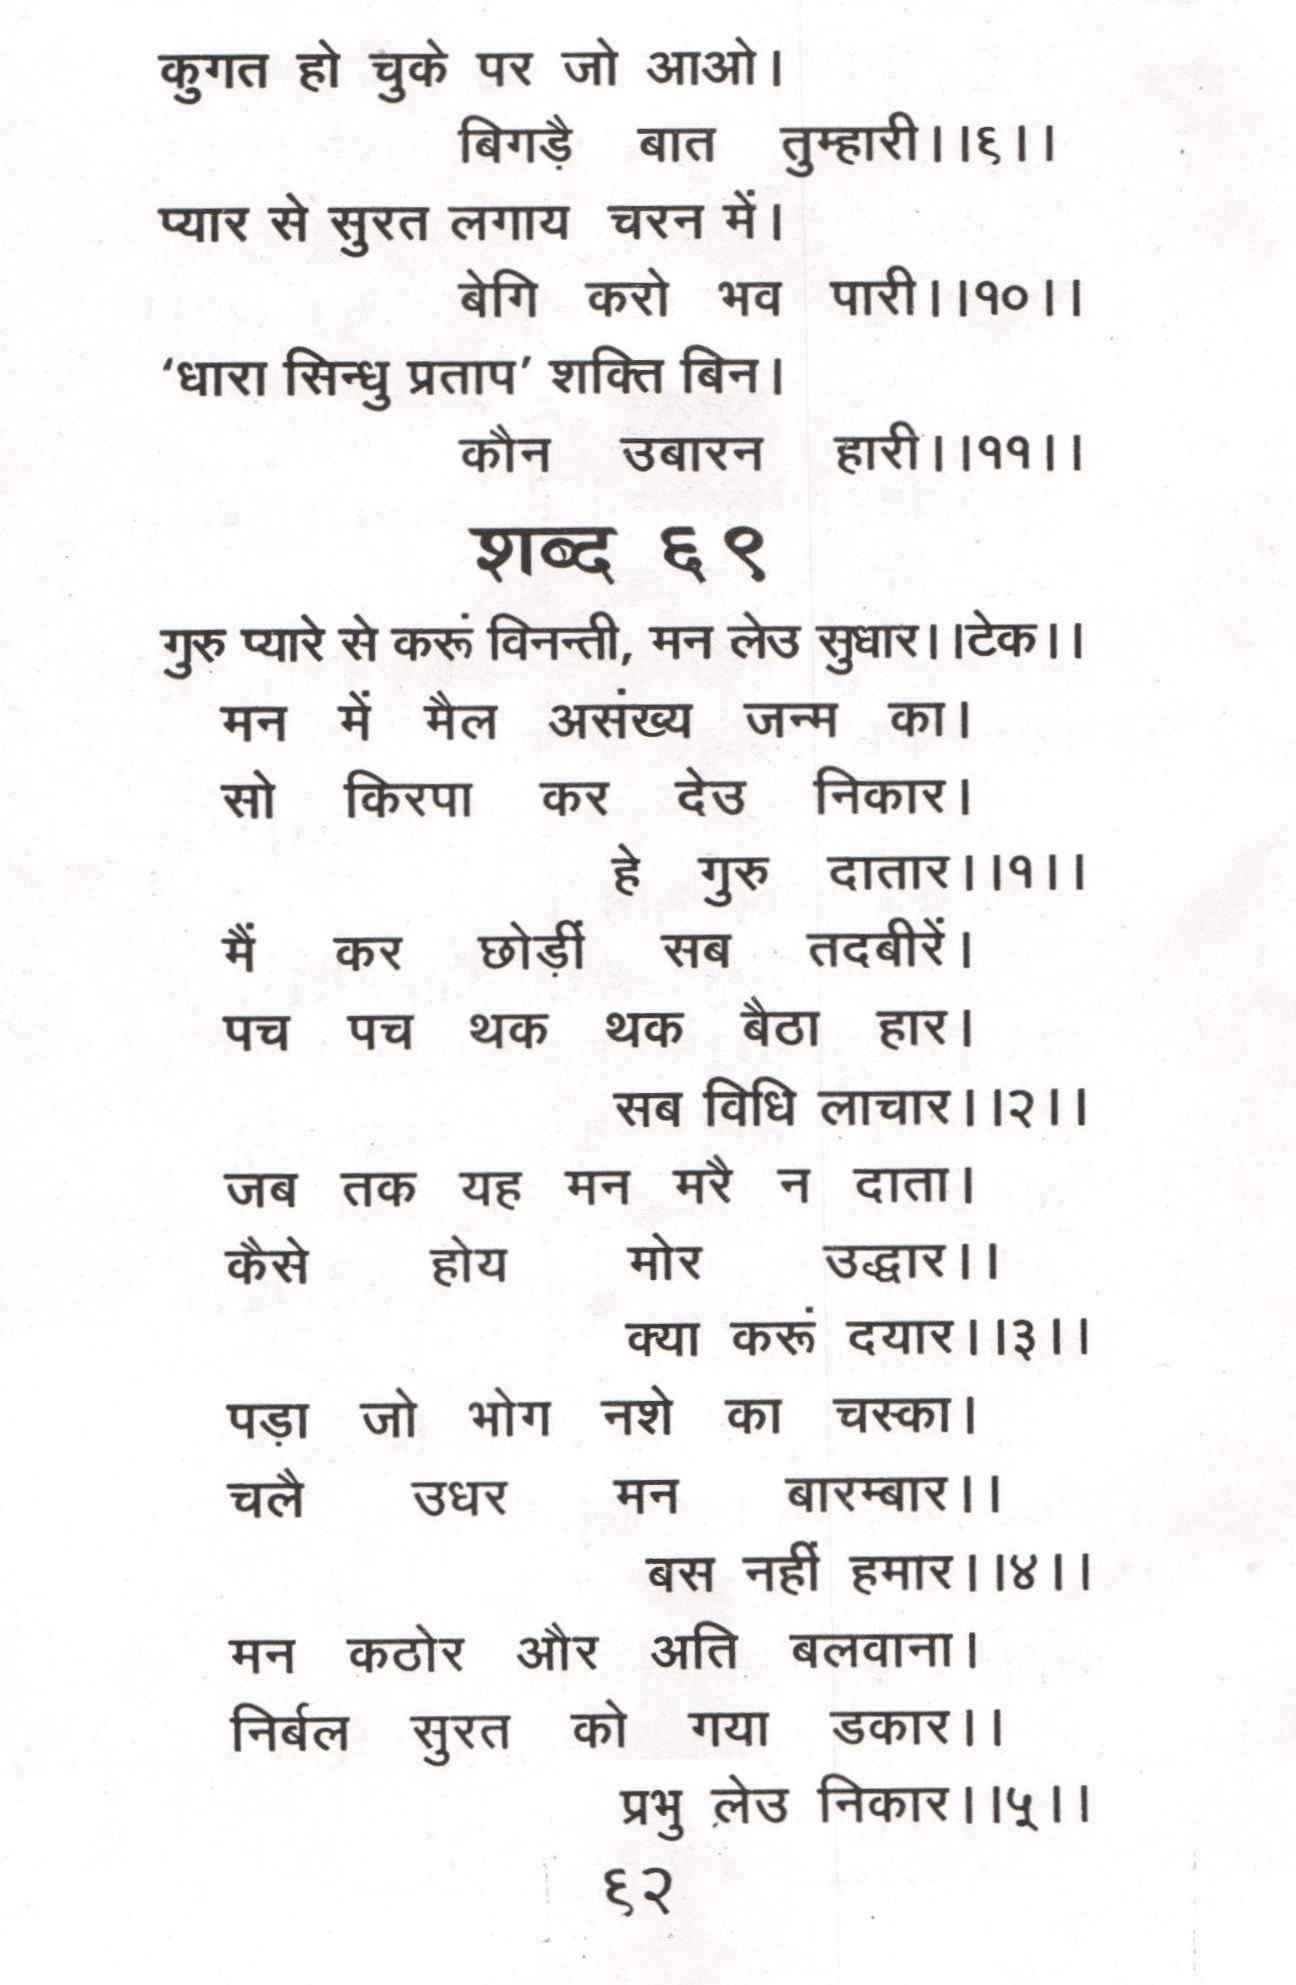 कुगत हो चुके पर जो आओ।
बिगड़ै बात तुम्हारी।।६।।
प्यार से सुरत लगाय चरन में।
बेगि करो भव पारी।।१०।।
‘धारा सिन्धु प्रताप’ शक्ति बिन।
कौन उबारन हारी।।११।।
शब्द ६९
गुरु प्यारे से करूं विनन्ती, मन लेउ सुधार।।टेक।।
मन में मैल असंख्य जन्म का।
सो किरपा कर देउ निकार।
हे गुरु दातार।।१।।
मैं कर छोड़ीं सब तदबीरें।
पच पच थक थक बैठा हार।
सब विधि लाचार।।२।।
जब तक यह मन मरै न दाता।
कैसे होय मोर उद्धार।।
क्या करूं दयार।।३।।
पड़ा जो भोग नशे का चस्का।
चलै उधर मन बारम्बार।।
बस नहीं हमार।।४।।
मन कठोर और अति बलवाना।
निर्बल सुरत को गया डकार।।
प्रभु लेउ निकार।।५।।
६२